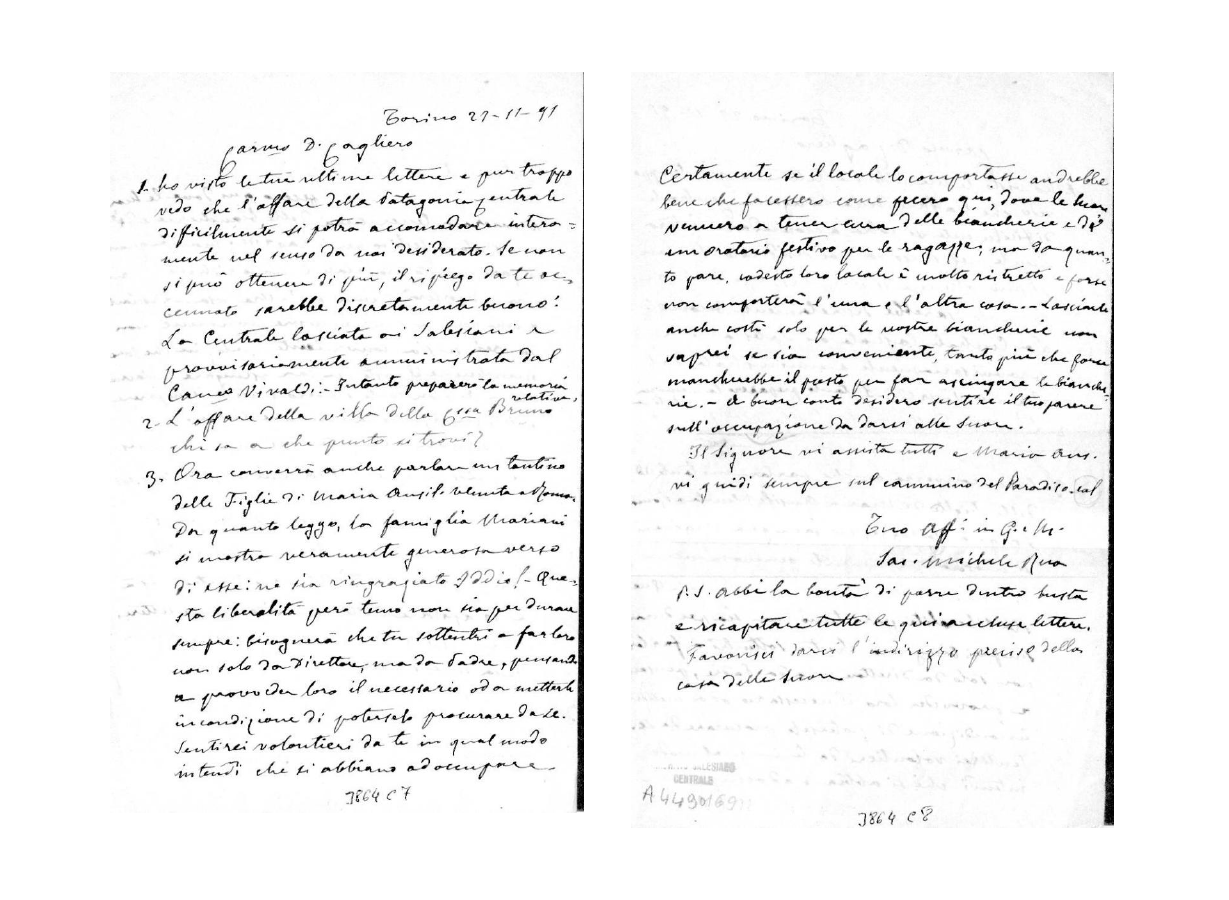 Torino 27-11-91
Carmo D. Cagliero
1. ho visto le tue ultime lettere e pur troppo
vedo che l'affare della Patagonia Centrale
difficilmente si potrà accomodare intera=
mente nel senso da noi desiderato. Se non
si può ottenere di più, il ripiego da te ac-
cennato sarebbe discretamente buono:
La Centrale lasciata ai Salesiani e
provvisoriamente amministrata dal
Canco Vivaldi. - Intanto preparerò la memoria
relativa.
2. L'affare della villa della Cssa Bruno
chi sa a che punto si trovi?
3. Ora converrà anche parlare un tantino
delle Figlie di Maria Ausil. venute a Roma.
Da quanto leggo, la famiglia Mariani
si mostra veramente generosa verso
di esse: ne sia ringraziato Iddio! - Que-
sta liberalità però temo non sia per durare
sempre: bisognerà che tu sottentri a far loro
non solo da Direttore, ma da Padre, pensando
a provveder loro il necessario od a metterle
in condizione di poterselo procurare da se.
Sentirei volontieri da te in qual modo
intendi che si abbiano ad occupare
J864 C7
Certamente se il locale lo comportasse andrebbe
bene che facessero come fecero qui, dove le suore
vennero a tener cura delle biancherie e di
un oratorio festivo per le ragazze; ma da quan-
to pare, codesto loro locale è molto ristretto e forse
non comporterà l'una e l'altra cosa. - Lasciarle
anche costì solo per le nostre biancherie non
saprei se sia conveniente, tanto più che forse
mancherebbe il posto per far asciugare le bianche-
rie. - A buon conto desidero sentire il tuo parere
sull'occupazione da darsi alle Suore.
Il Signore vi assista tutti e Maria Aus.
vi guidi sempre sul cammino del Paradiso.
Tuo Aff. in G. e M.
Sac. Michele Rua
P.S. Abbi la bontà di porre dentro busta
e ricapitare tutte le qui accluse lettere.
Favorisci darci l'indirizzo preciso della
casa delle suore
SALESIANO
CENTRALE
A4490169
J864 C8